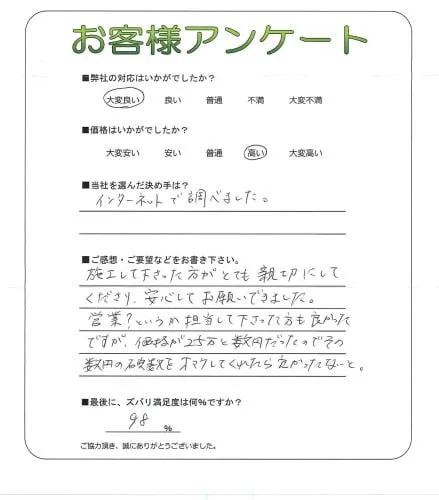 お客様アンケート
■弊社の対応はいかがでしたか?
大変良い 良い 普通 不満 大変不満
■価格はいかがでしたか?
大変安い 安い 普通 高い 大変高い
■当社を選んだ決め手は?
インターネットで調べました。
■ご感想・ご要望などをお書き下さい。
施工して下さった方がとても親切にして
くださり、安心してお願いできました。
営業?というか担当して下さった方も良かった
ですが、価格が25万と数円だったのでその
数円の端数をオマケしてくれたら良かったなぁと。
■最後に、ズバリ満足度は何%ですか?
98 %
ご協力頂き、誠にありがとうございました。